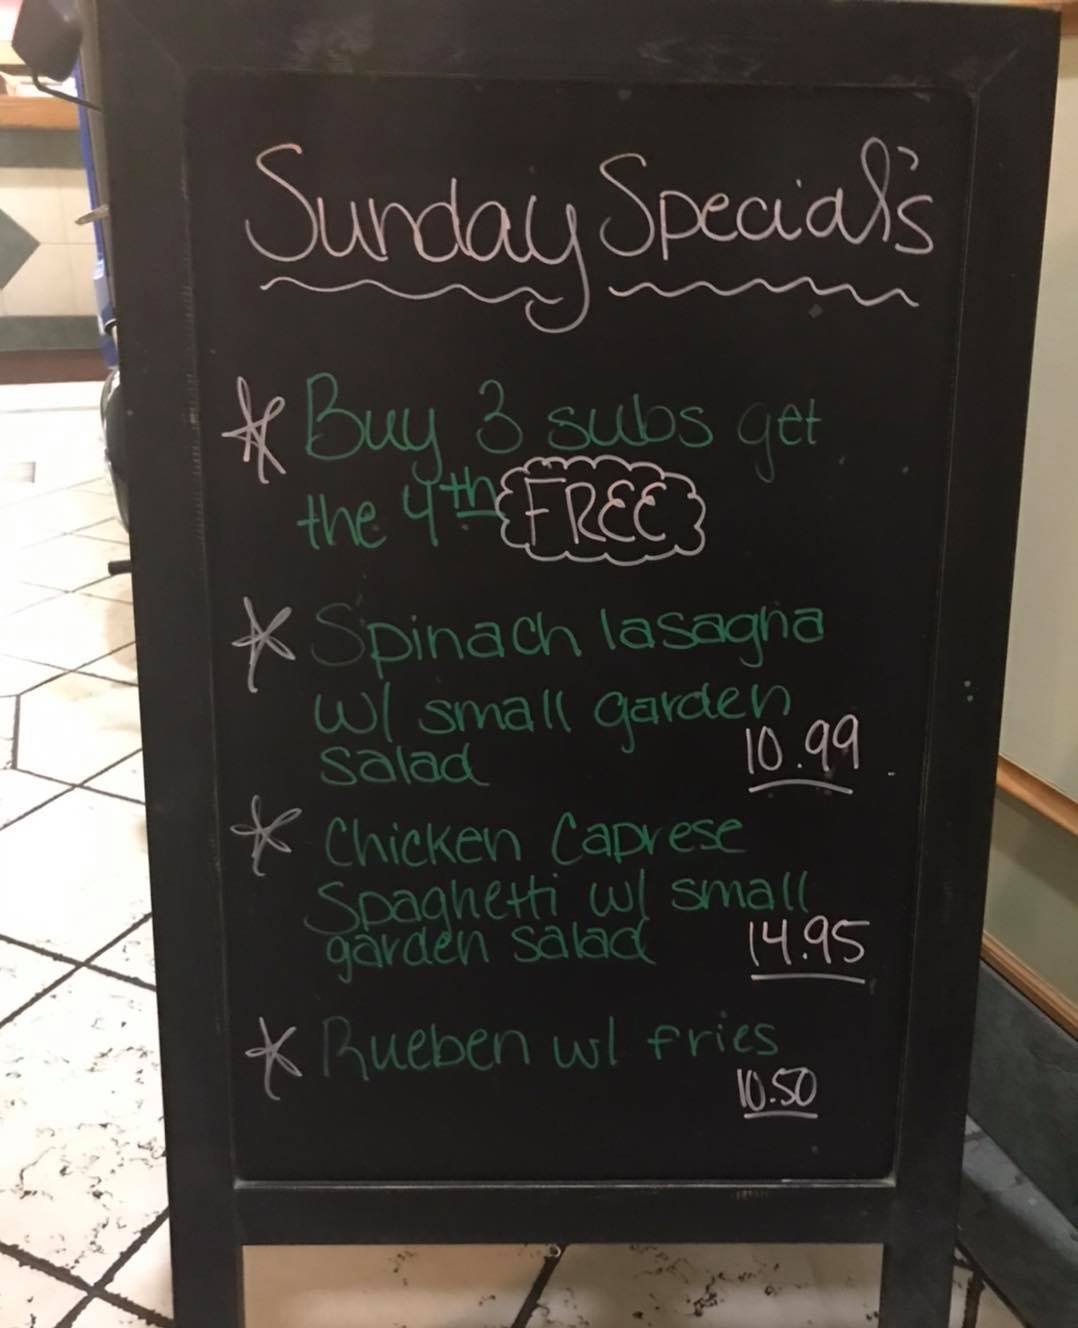 Sunday Special's
* Buy 3 subs get
the 4th FREE
* Spinach lasagna
w/ small garden
salad 10.99
* Chicken Caprese
Spaghetti w/ small
garden salad 14.95
* Rueben w/ fries
10.50